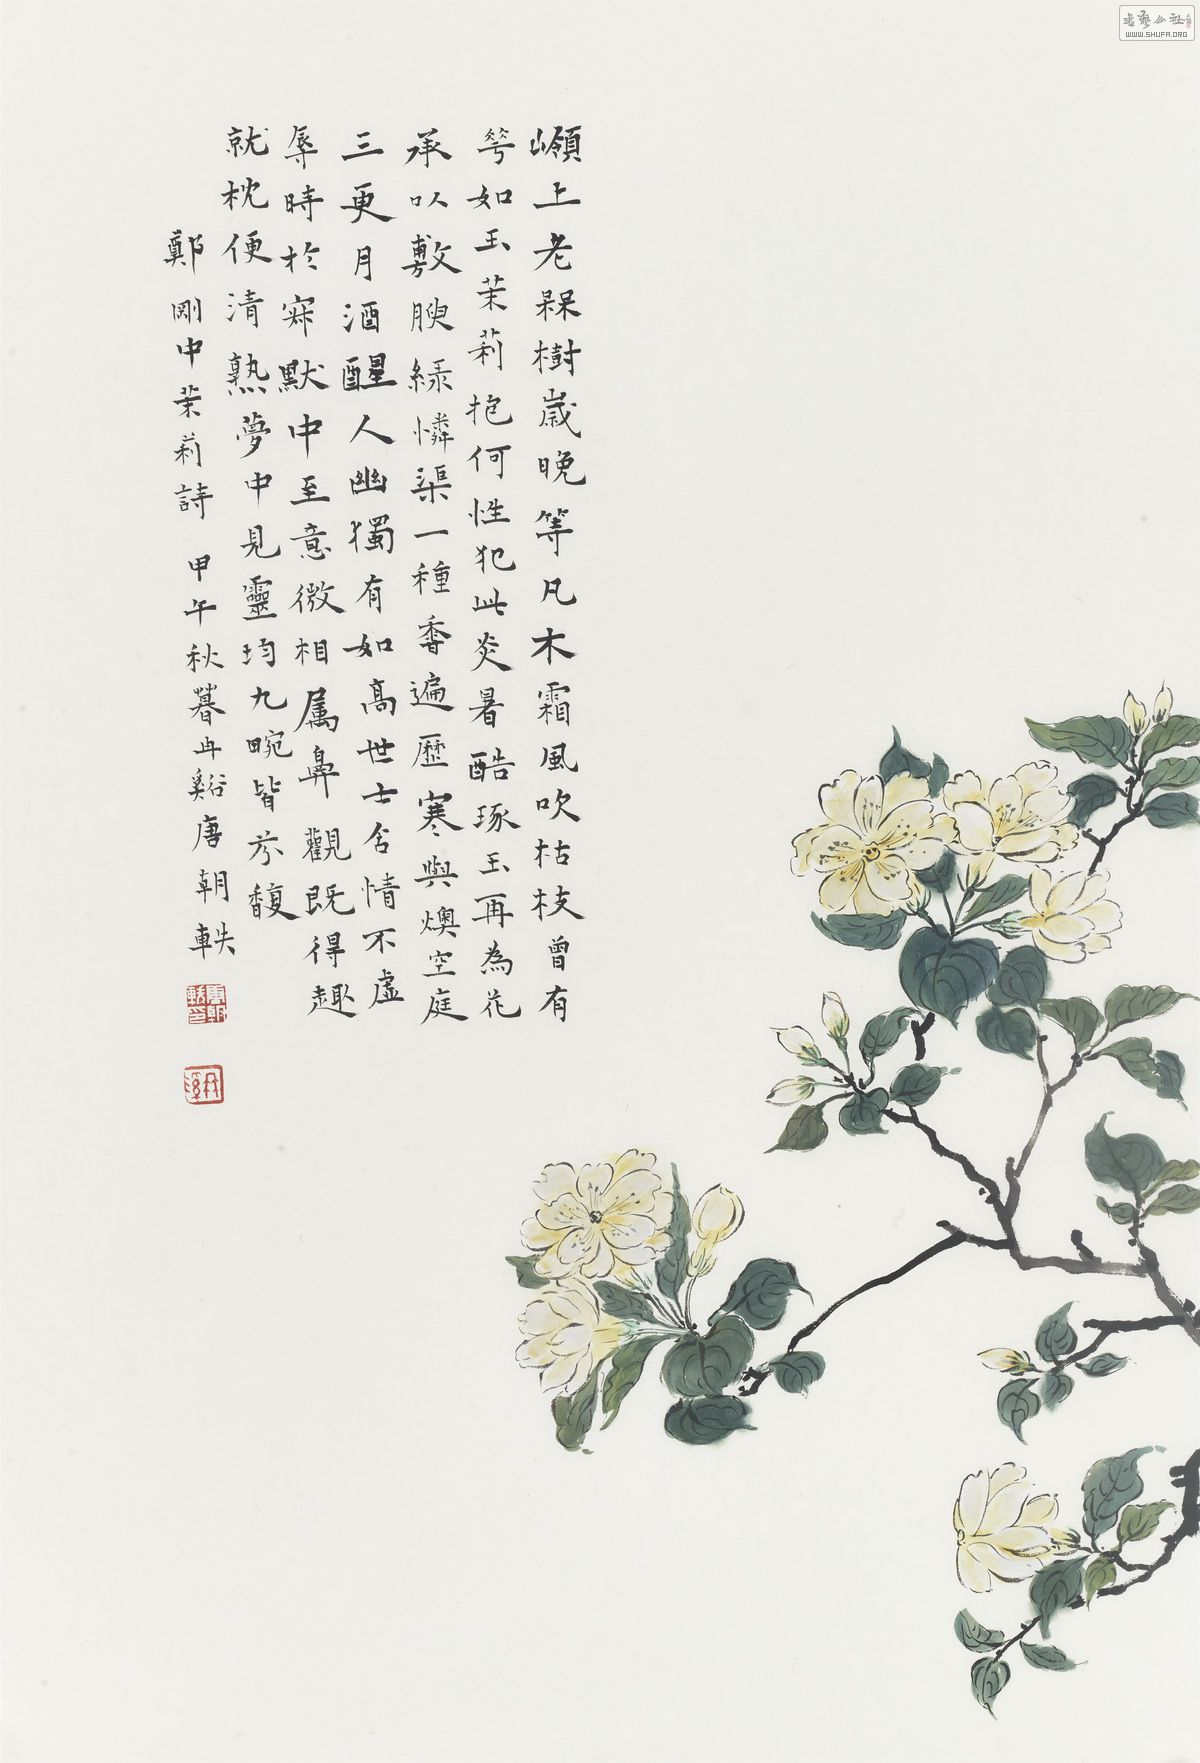 嶺上老槑樹歲晚等凡木霜風吹枯枝曾有
萼如玉茉莉抱何性犯此炎暑酷琢玉再為花
承以敷腴綠憐渠一種香遍歷寒與燠空庭
三更月酒醒人幽獨有如高世士含情不虛
辱時於寂默中至意微相属鼻觀既得趣
就枕便清熟夢中見靈均九畹皆芬馥
鄭剛中茉莉詩 甲午秋暮冉谿唐朝軼
唐朝軼印
冉溪
書藝公社
WWW.SHUFA.ORG